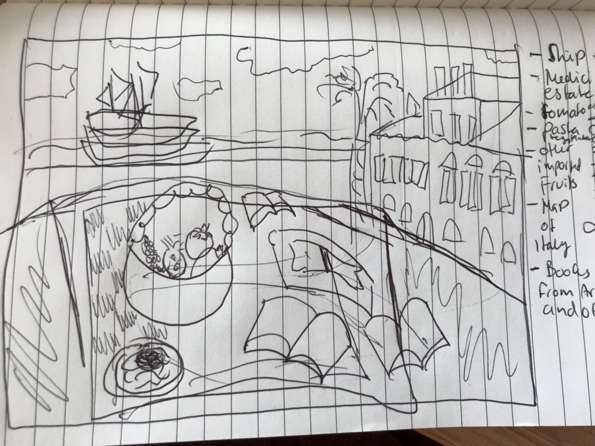 - Ship -
- Medici
estate
- tomato
- Pasta
- other
imported
fruits
- Map
of
Italy
- Books
from Ar
and of